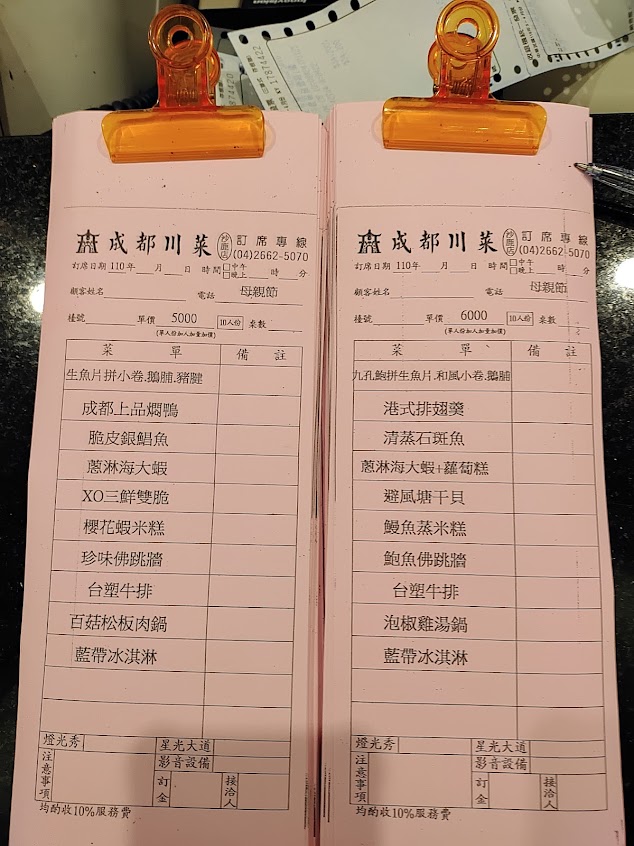 17874422
成都川菜 沙鹿店 訂席專線
(04)2662-5070
訂席日期 110年 月 日 時間 □中午 □晚上 時 分
顧客姓名 電話 母親節
檯號 單價 5000 10人份 桌數
(單人份加人加量加價)
菜 單 備 註
生魚片拼小卷.鵝脯.豬腱
成都上品燜鴨
脆皮銀鯧魚
蔥淋海大蝦
XO三鮮雙脆
櫻花蝦米糕
珍味佛跳牆
台塑牛排
百菇松板肉鍋
藍帶冰淇淋
燈光秀 星光大道
影音設備
注意事項 訂金 接洽人
均酌收10%服務費
成都川菜 沙鹿店 訂席專線
(04)2662-5070
訂席日期 110年 月 日 時間 □中午 □晚上 時 分
顧客姓名 電話 母親節
檯號 單價 6000 10人份 桌數
(單人份加人加量加價)
菜 單 備 註
九孔鮑拼生魚片.和風小卷.鵝脯
港式排翅羹
清蒸石斑魚
蔥淋海大蝦+蘿蔔糕
避風塘干貝
鰻魚蒸米糕
鮑魚佛跳牆
台塑牛排
泡椒雞湯鍋
藍帶冰淇淋
燈光秀 星光大道
影音設備
注意事項 訂金 接洽人
均酌收10%服務費